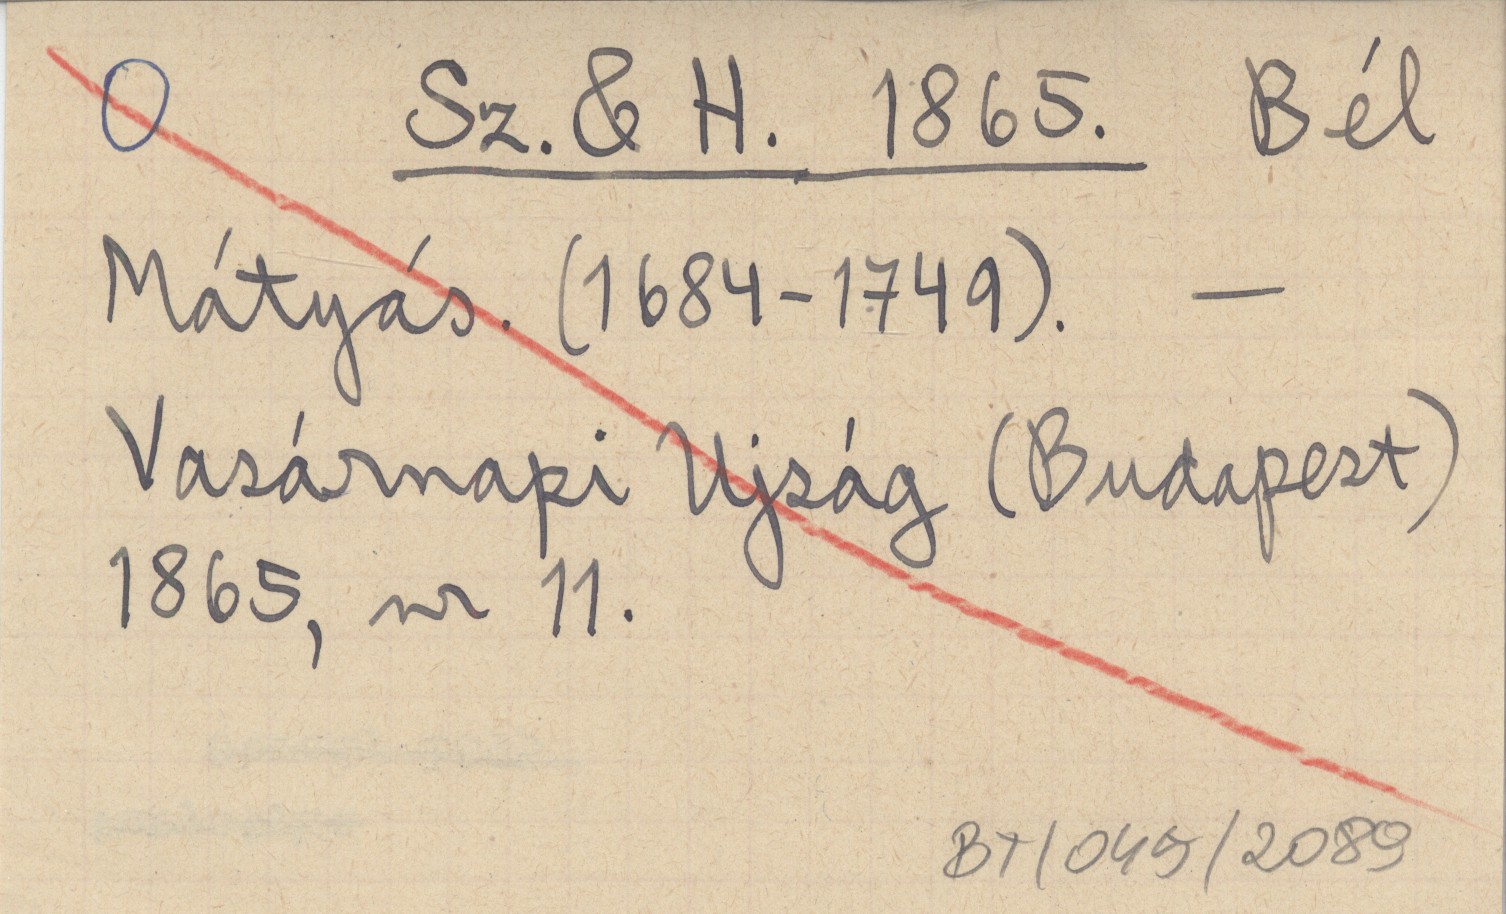 O Sz. & H. 1865. Bél
Mátyás. (1684-1749). —
Vasárnapi Ujság (Budapest)
1865, nr 11.
BT/045/2089